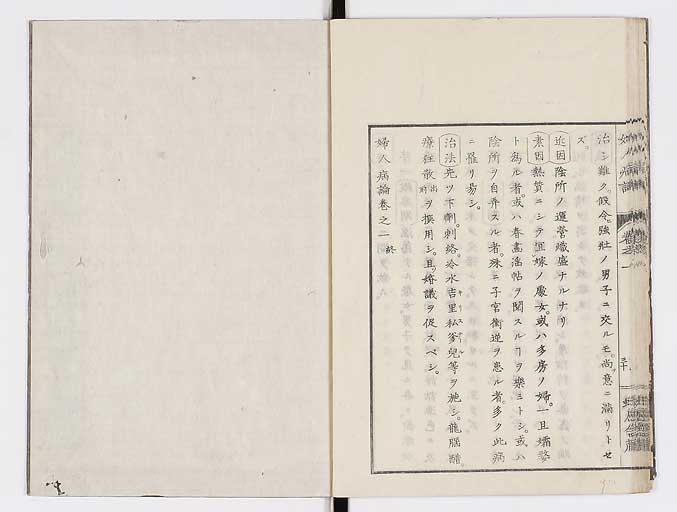 治シ難ク。假令。強壯ノ男子ニ交ルモ。尚。意ニ滿リトセ
ズ。
近因 陰所ノ運營熾盛ナルナリ
素因 熱質ニシテ ノ處女。或ハ多房ノ婦。一旦孀嫠
ト為ル者。或ハ春畫淫帖ヲ閲スルヿヲ樂ミトシ。或ハ
陰所ヲ自弄スル者。殊ニ子宮衝逆ヲ患ル者。多ク此病
ニ罹リ易シ。
治法 先ツ下劑。刺絡。冷水吉里私爹兒等ヲ施シ。龍腦醋。
療狂散 出 ヲ撰用シ。且。婚議ヲ促スベシ。
婦人病論卷之二 終